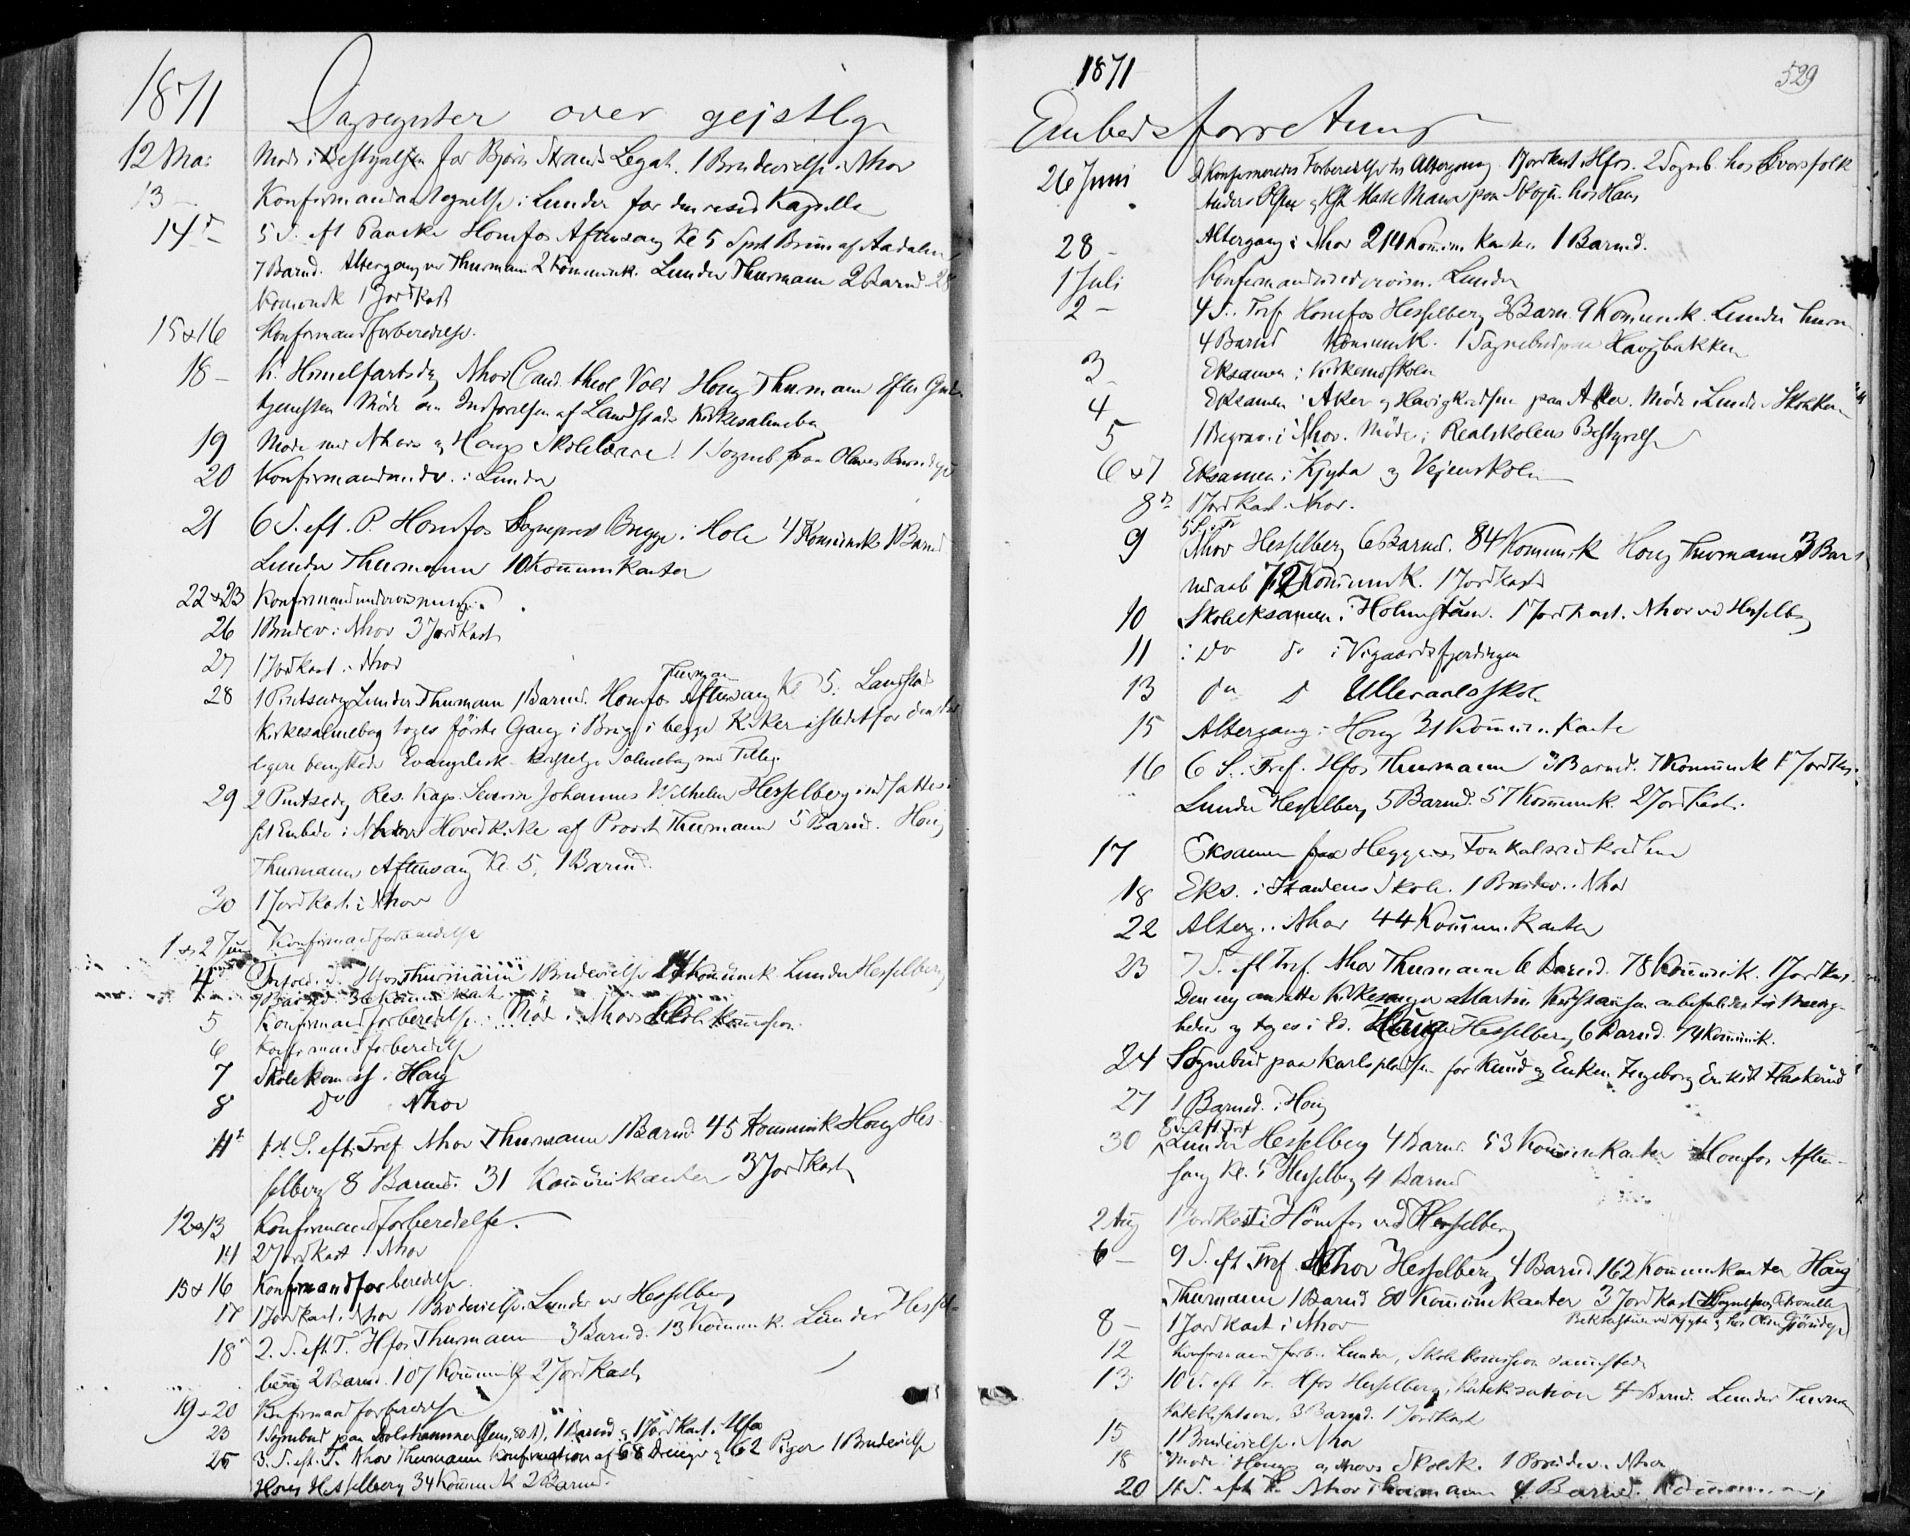 1871
Dagregister over gejstlige
12 Mai Møde i Bestyrelsen for Bjørn Strands Legat. 1 Brudevielse i Nhov
13 – Konfirmandantegnelse i Lunder for den resid Kapellan
14de 5 S. eft Paaske Honefos Aftensang Kl 5 Sprst Bruun af Aadalen
7 Barnd. Altergang ved Thurmann 2 Kommunik. Lunder Thurmann 2 Barnd 28
Komunik 1 Jordkast
15 & 16 Konfirmandforberedelse.
18 – K. Himelfartsdag Nhov Cand. theol Vold Houg Thurmann Efter Guds
tjenesten Møde om Indførelsen af Landstads Kirkesalmebog
19 Møde med Nhovs og Hougs Skolelærere. 1 Sogneb paa
20 Konfirmandundv. i Lunder
21 6 S. eft. P. Honefos Sognepræst Brygge i Hole 4 Komunik 1 Barnd
Lunder Thurmann 10 Kommunikanter
22 & 23 Konfirmandundervisning.
26 1 Brudev. i Nhov 3 Jordkast
27 1 Jordkast i Nhov
28 1 Pintsedag Lunder Thurmann 1 Barnd. Honefos Thurmann Aftensang Kl 5. Landstads
Kirkesalmebog toges første Gang i Brug i begge Kirker istedetfor den tid
ligere benyttede Evangelisk kristelige Salmebog med Tillæg.
29 2 Pintsedag Res. Kap. Severin Johannes Wilhelm Hesselberg indsattes i
sit Embede i Nhov Hovedkirke af Provst Thurmann 5 Barnd. Houg
Thurmann Aftensang Kl. 5, 1 Barnd.
30 1 Jordkast i Nhov
1 & 2 Juni Konfirmandforberedelse
4 Trefold. S. Hfos Thurmann 1 Brudevielse 24 Komunik. Lunder Hesselberg
9 Barnd 36 Komunikant
5 Konfirmandforberedelse. Møde i Nhovs Skolekomission.
6 Konfirmandforberedelse
7 Skolekomiss. i Houg
8 Do Nhov
11te 1st S. eft. Tref Nhov Thurmann 1 Barnd 45 Kommunik Houg Hes-
selberg 8 Barnd. 31 Kommunikanter 3 Jordkast
12 & 13 Konfirmandforberedelse.
14 2 Jordkast i Nhov
15 & 16 Konfirmandforberedelse.
17 1 Jordkast i Nhov 1 Brudevielse i Lunder ved Hesselberg
18de 2. S. eft. T. Hfos Thurmann 3 Barnd. 13 Komunik. Lunder Hessel-
berg 2 Barnd. 107 Komunik 2 Jordkast
19 – 20 Konfirmandforberedelse
23 1 Sognebud paa 1 Barnd og 1 Jordkast i Hfos
25 3. S. eft. T. Nhov Thurmann Konfirmation af 68 Drenge og 62 Piger 1 Brudevielse
Houg Hesselberg 34 Komunik 2 Barnd.
1871
529
Embedsforretninger
26 Juni Konfirmeredes Forberedelse til Altergang. 1 Jordkast i Hfos. 2 Sogneb. hos
Anders Olsen og hos Hans
28 – Altergang i Nhov 214 Kommunikanter 1 Barnd.
1 Juli Konfirmandundervisn. Lunder
2 – 4 S. Tref Honefos Hesselberg 3 Barn. 9 Komunik. Lunder Thurm.
4 Barnd Komunik. 1 Sognebud paa Haugbakken
3 Eksamen i Kirkemoskolen
4 Eksamen i Aker og Haugkredsen paa Aker. Møde i Lunder Skolekom
5 1 Begrav. i Nhov. Møde i Realskolens Bestyrelse
6 & 7 Eksamen i Kjyta og Vejenskolen
8de 1 Jordkast i Nhov.
9 5 S. e Tr Nhov Hesselberg 6 Barnd. 84 Komunik Houg Thurmann 3 Bar
nedaab 72 Komunik. 1 Jordkast
10 Skoleeksamen i Holmstuen. 1 Jordkast. Nhov ved Hesselberg
11 i Do do i Vigaardsfjerdingen
13 do d Ulleraalsskole
15 Altergang i Houg 31 Kommunikante
16 6 S. i Tref. Hfos Thurmann 3 Barnd. 7 Komunik 1 Jordkas.
Lunder Hesselberg 5 Barnd. 57 Komunik. 2 Jordkast.
17 Eksamen paa Heggen
18 Eks. i Strandens Skole. 1 Brudev. i Nhov
22 Alterg. i Nhov 44 Kommunikanter
23 7 S. eft Tref. Nhov Thurmann 6 Barnd. 78 Komunik. 1 Jordkas.
Den ny ansatte Kirkesanger Martin Kristiansen anbefaledes til Menig-
heden og toges i Ed. Haug Hesselberg 6 Barnd. 74 Komunik.
24 Sognebud paa Karlspladsen for Knud og Enken Ingeborg Eriksd
27 1 Barnd. i Houg
30 8 S. eft Tref Lunder Hesselberg 4 Barnd. 53 Komunikanter Honefos Aften-
sang Kl. 5 Hesselberg 4 Barnd
2 Aug 1 Jordkast i Hønefos ved Hesselberg
6 – 9 S. eft Tref Nhov Hesselberg 4 Barnd. 162 Komunikanter Haug
Thurmann 1 Barnd 80 Kommunikanter 3 Jordkast
8 – 1 Jordkast i Nhov
12 Konfirmandforb. i Lunder, Skolekomission sammesteds
13 10 S. eft Tr. Hfos Hesselberg, Katekisation 4 Barnd. Lunder Thurman
Katekisation. 3 Barnd. 1 Jordkast
15 1 Brudevielse i Nhov
18 Møde i Hougs og Nhovs Skolek. 1 Brudev. i Nhov
20 11 S. eft Tr. Nhov Thurmann 4 Barnd.